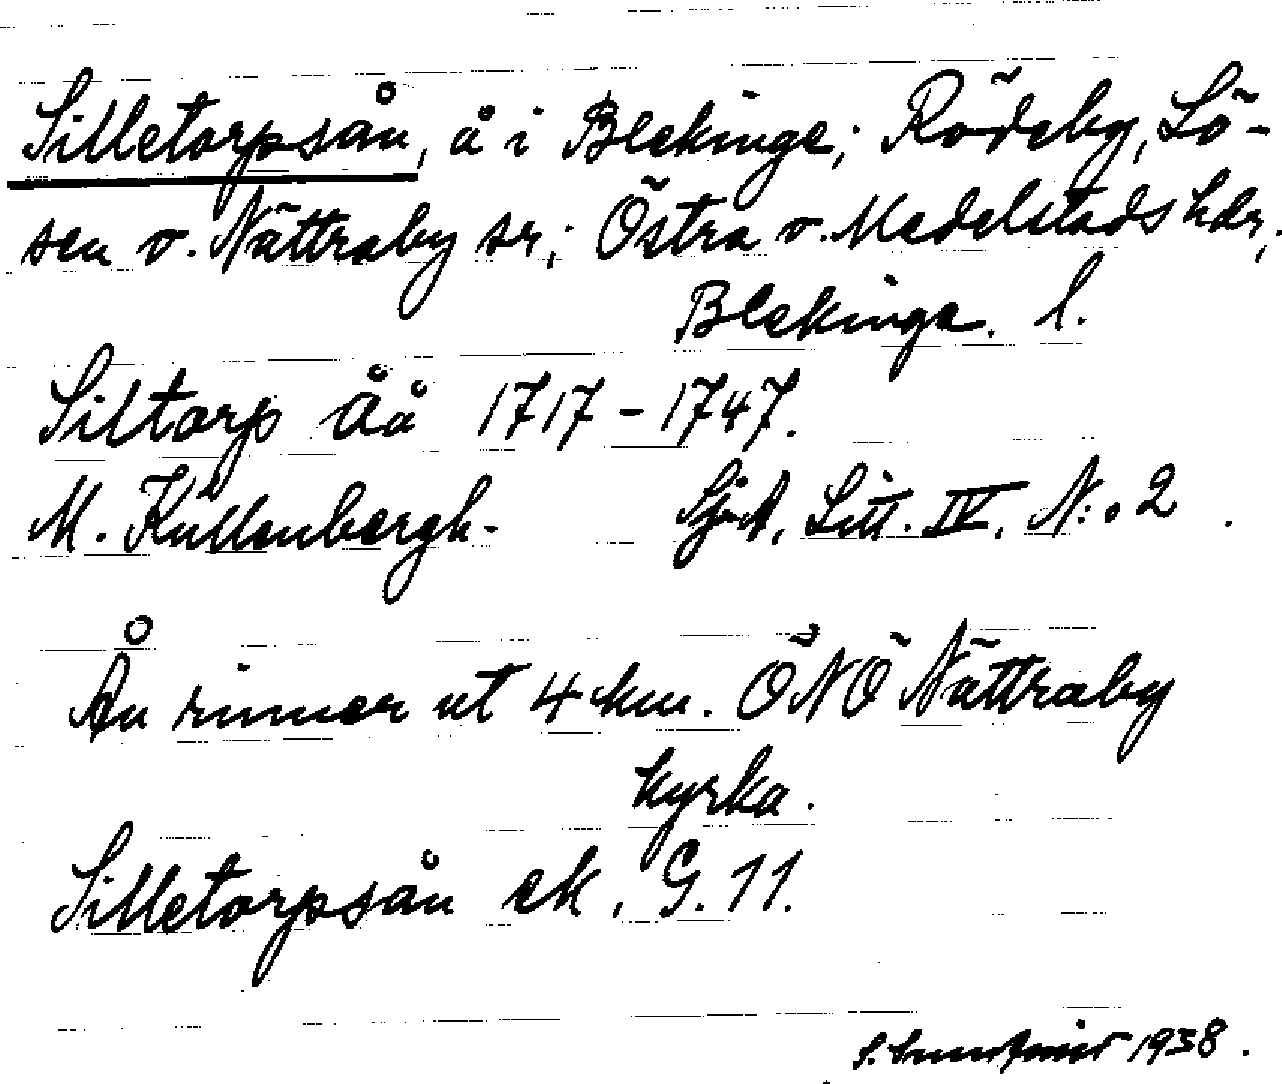 Silletorpsån, å i Blekinge; Rödeby, Lö-
sen o. Nättraby sr; Östra o. Medelstads hdr,
Blekinge l.
Siltorp Åå 1717-1747.
M. Kullenbergh. Sjö A, Litt. IV. N:o 2.
Ån rinner ut 4 km. ÖNÖ Nättraby
kyrka.
Silletorpsån ek. G. 11.
1938.